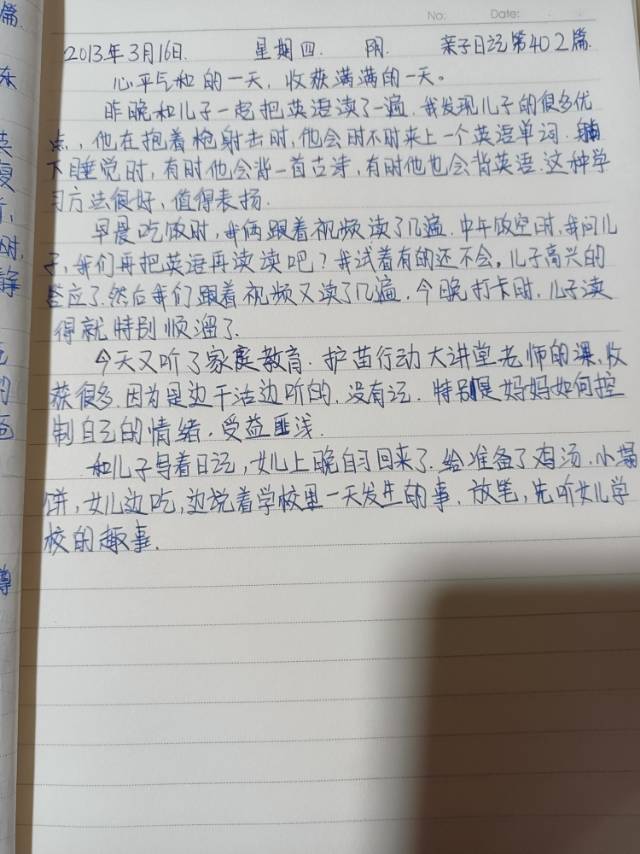 No. Date:
2013年3月16日. 星期四. 阴. 亲子日记第402篇.
心平气和的一天，收获满满的一天。
昨晚和儿子一起把英语读了一遍.我发现儿子的很多优
点，他在抱着枪射击时，他会时不时来上一个英语单词.躺
下睡觉时，有时他会背一首古诗，有时他也会背英语.这种学
习方法很好，值得表扬.
早晨吃饭时，我俩跟着视频读了几遍.中午放空时，我问儿
子，我们再把英语再读读吧？我试着有的还不会，儿子高兴的
答应了.然后我们跟着视频又读了几遍.今晚打卡时.儿子读
得就特别顺溜了.
今天又听了家庭教育.护苗行动大讲堂老师的课，收
获很多.因为是边干活边听的，没有记.特别是妈妈如何控
制自己的情绪.受益匪浅.
和儿子写着日记，女儿上晚自习回来了.给准备了鸡汤.小
饼，女儿边吃，边说着学校里一天发生的事.放笔，先听女儿学
校的趣事.
篇